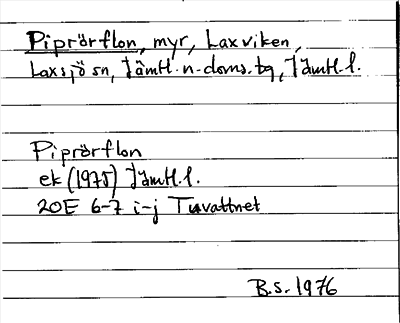 Piprörflon, myr, Laxviken,
Laxsjö sn, Jämtl. n. doms. tg, Jämtl. l.
Piprörflon
ek (1975) Jämtl. l.
20E 6-7 i-j Tuvattnet
B.S. 1976